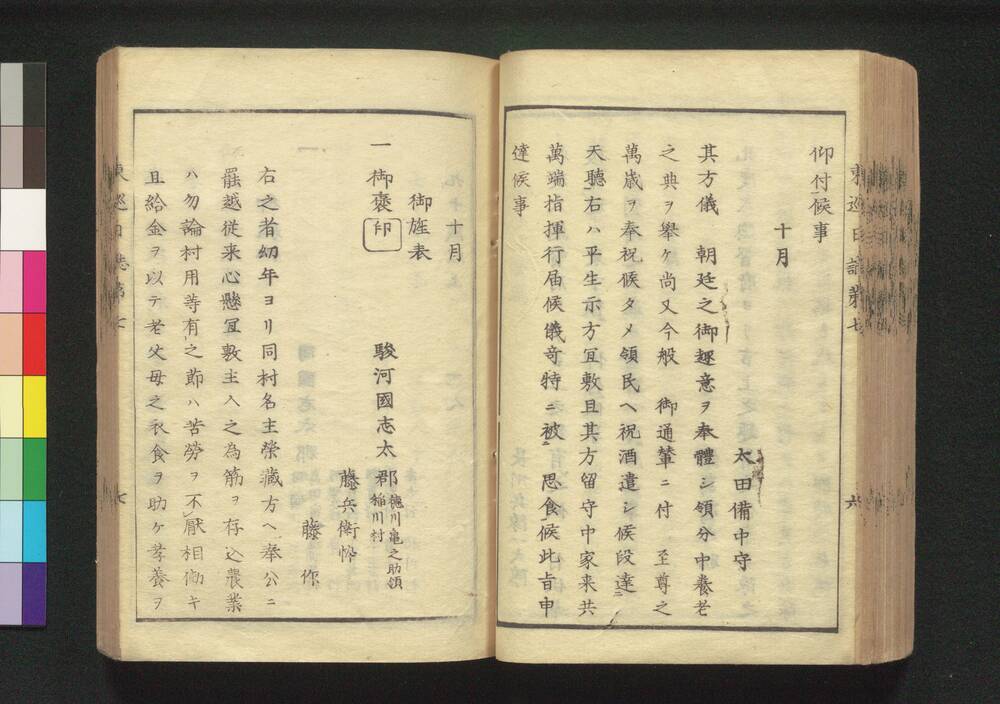 東巡日誌第七
六
仰付候事
十月
太田備中守
其方儀 朝廷之御趣意ヲ奉體シ領分中養老
之典ヲ舉ケ尚又今般 御通輦ニ付 至尊之
萬歳ヲ奉祝候タメ領民ヘ祝酒遣シ候段達ニ
天聽右ハ平生示方宜敷且其方留守中家来共
萬端指揮行届候儀竒特ニ被 思食候此旨申
達候事
十月
御旌表
一 御褒印 駿河國志太郡
徳川亀之助領
稲川村
藤兵衛忰
藤 作
右之者幼年ヨリ同村名主榮藏方ヘ奉公ニ
罷越従来心懸宜敷主人之為筋ヲ存込農業
ハ勿論村用等有之節ハ苦勞ヲ不厭相働キ
且給金ヲ以テ老父母之衣食ヲ助ケ孝養ヲ
東巡日誌第七
七